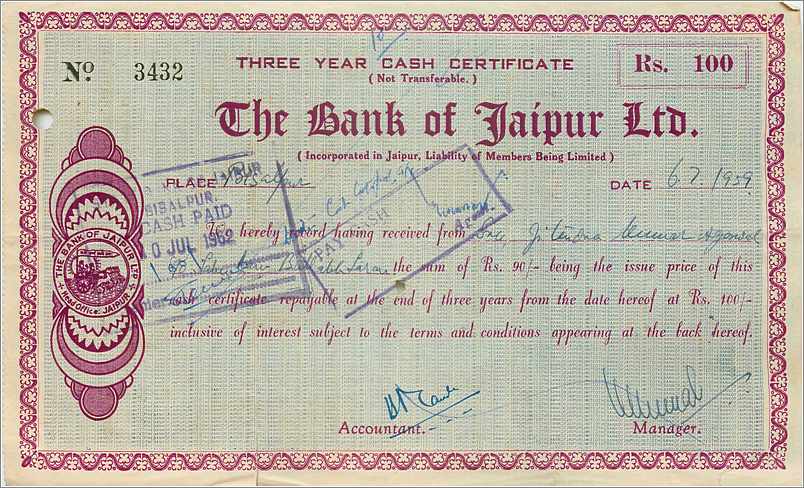 No. 3432
THREE YEAR CASH CERTIFICATE
(Not Transferable.)
Rs. 100
The Bank of Jaipur Ltd.
(Incorporated in Jaipur, Liability of Members Being Limited)
PLACE Bisalpur
DATE 6.7.1959
We hereby record having received from Jitendra Kumar Agarwal
the sum of Rs. 90/- being the issue price of this
cash certificate repayable at the end of three years from the date hereof at Rs. 100/-
inclusive of interest subject to the terms and conditions appearing at the back hereof.
Accountant.
Manager.
THE BANK OF JAIPUR LTD.
Head Office: JAIPUR
JAIPUR
BISALPUR.
CASH PAID
10 JUL 1962
PAY CASH